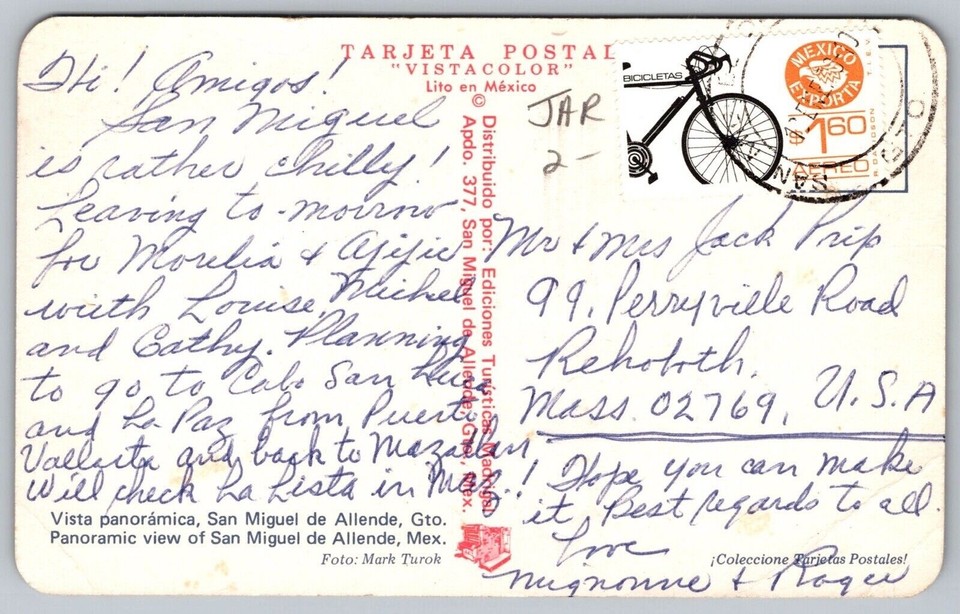 TARJETA POSTAL
"VISTACOLOR"
Lito en México
©
Distribuido por: Ediciones Turísticas Madrigal
Apdo. 377, San Miguel de Allende, Gto., Mex.
Hi! Amigos!
San Miguel
is rather chilly!
Leaving to-morrow
for Morelia & Ajijic
with Louise, Michel
and Cathy. Planning
to go to Cabo San Lucas
and La Paz from Puerto
Vallarta and back to Mazatlan,
will check La Lista in Maz..! Hope you can make
it, Best regards to all.
Love
Mignonne & Roger
JAR
2-
BICICLETAS
MEXICO
EXPORTA
$1.60
AEREO
SAN
GTO
Mr & Mrs Jack Prip
99, Perryville Road
Rehoboth,
Mass. 02769, U.S.A
Vista panorámica, San Miguel de Allende, Gto.
Panoramic view of San Miguel de Allende, Mex.
Foto: Mark Turok
¡Coleccione Tarjetas Postales!